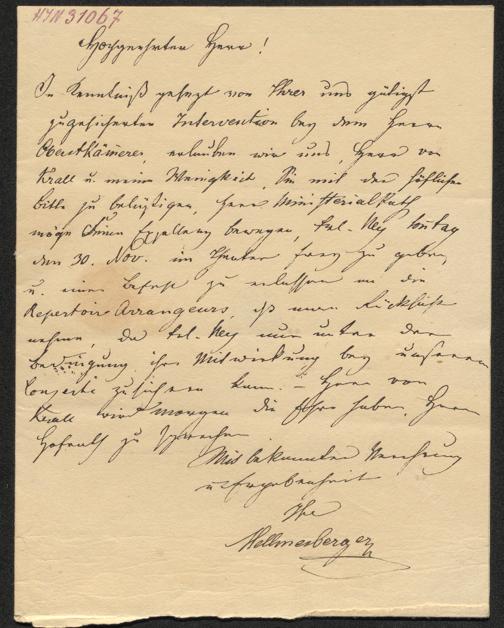 HIN 31067
Hochgeehrter Herr!
In Kenntniß gesezt von Ihrer uns gütigst
zugesicherten Intervention bey dem Herrn
Oberstkämmerer, erlauben wir uns, Herr von
Krall u. meine Wenigkeit, Sie mit der höflichen
Bitte zu belästigen, Herr Ministerial Rath
möge Seine Exzellenz bewegen, Frl. Ney Sontag
den 30. Nov. im Theater frey zu geben,
u. einen Befehl zu erlassen an die
Repertoir Arrangeurs, est man Rücksicht
nehme da Frl. Ney nur unter der
Bedingung ihre Mitwirkung bey unserem
Conzerte zusichern kann. – Herr von
Krall wird morgen die Ehre haben, Herrn
Hofrath zu sprechen
Mit bekannter Verehrung
u. Ergebenheit
Ihr
Hellmesberger